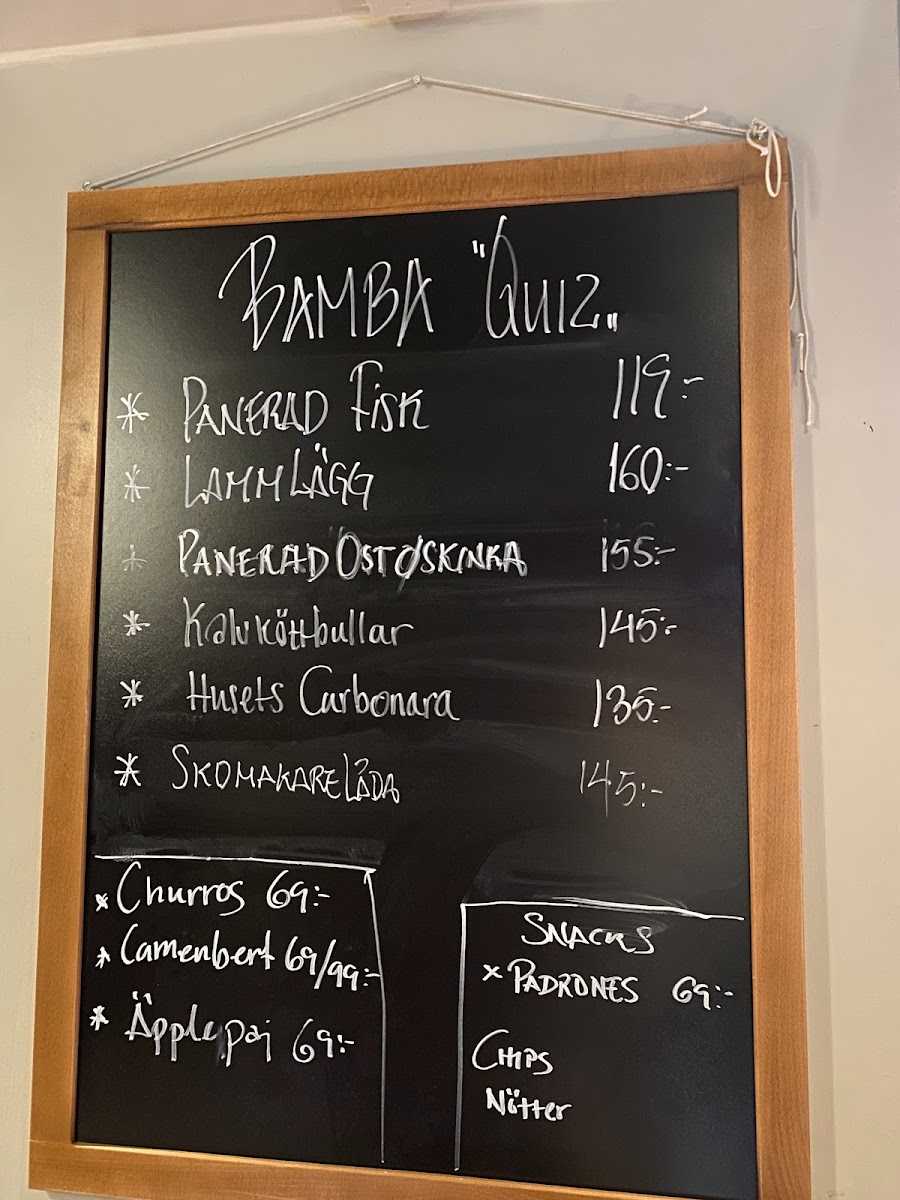 BAMBA "QUIZ„
* PANERAD FISK 119:-
* LAMMLÄGG 160:-
* PANERAD OST Ø SKINKA 155:-
* Kalvköttbullar 145:-
* Husets Carbonara 135:-
* SKOMAKARELÅDA 145:-
* Churros 69:-
* Camenbert 69/99:-
* Äpplepaj 69:-
SNACKS
× PADRONES 69:-
CHIPS
Nötter